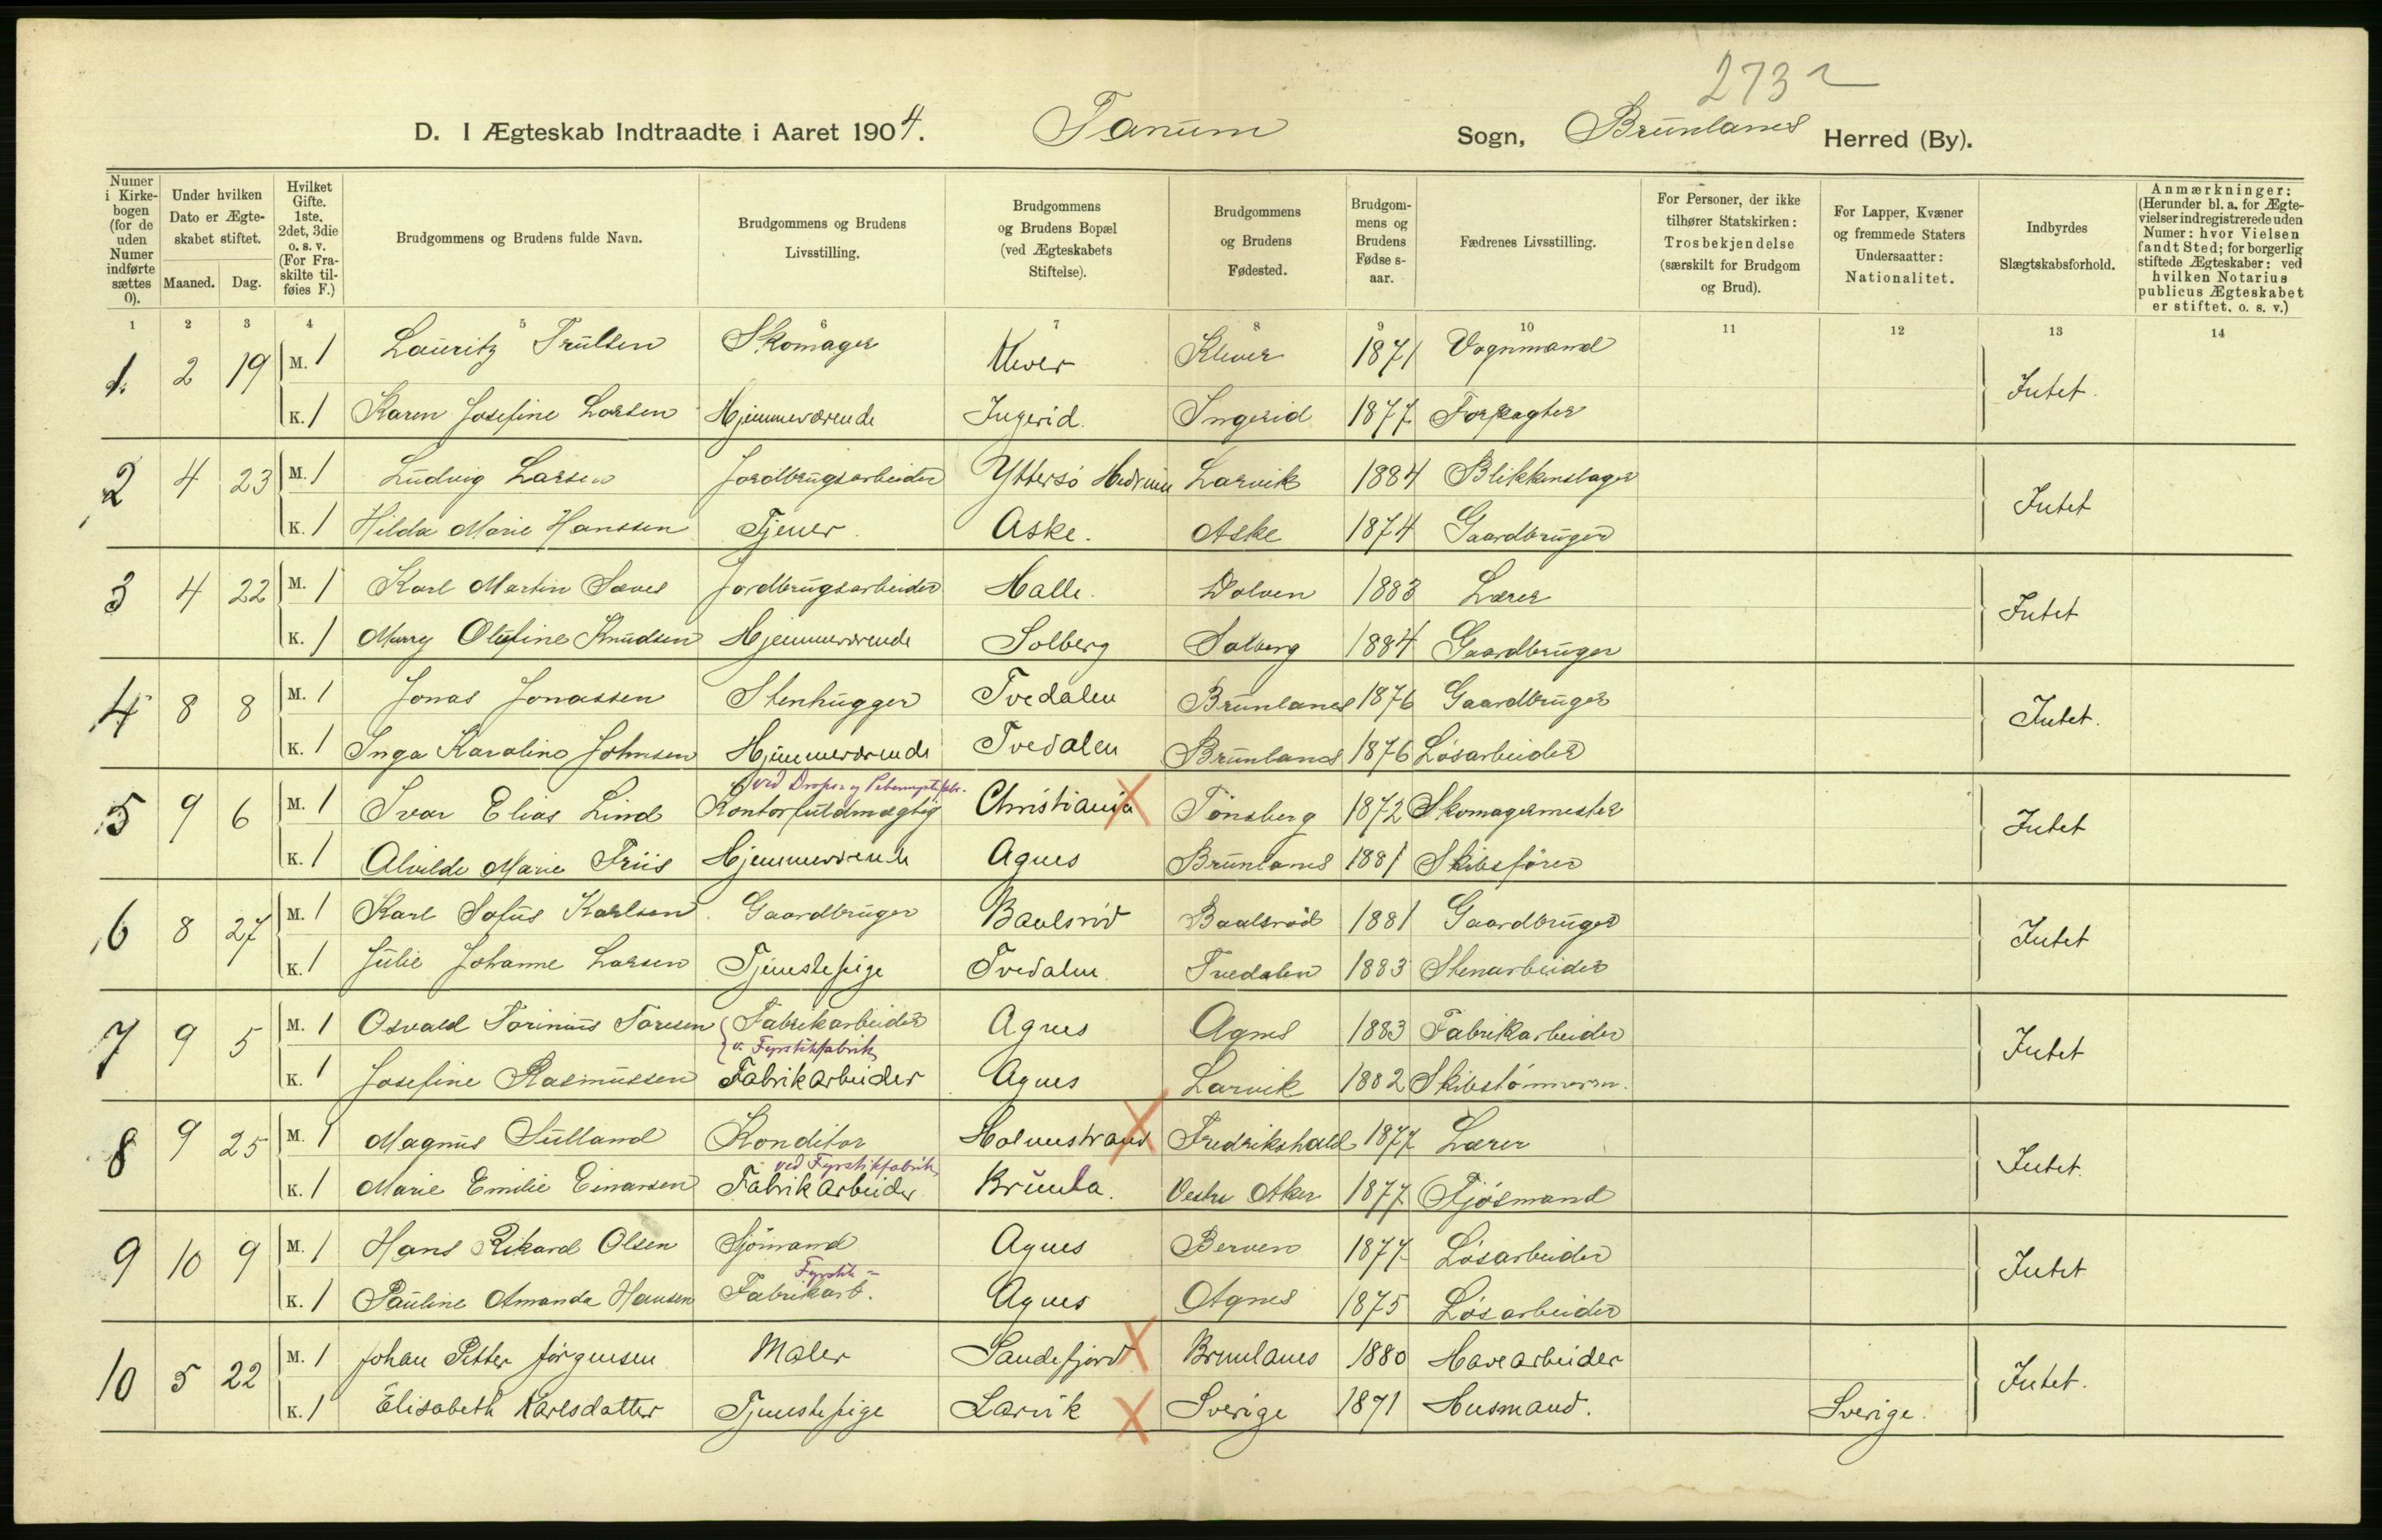 2732
D. I Ægteskab Indtraadte i Aaret 1904. Tanum Sogn, Brunlanes Herred (By).
Numer i Kirkebogen (for de uden Numer indførte sættes 0). | Under hvilken Dato er Ægteskabet stiftet. Maaned. Dag. | Hvilket Gifte. 1ste, 2det, 3die o. s. v. (For Fraskilte tilføies F.) | Brudgommens og Brudens fulde Navn. | Brudgommens og Brudens Livsstilling. | Brudgommens og Brudens Bopæl (ved Ægteskabets Stiftelse). | Brudgommens og Brudens Fødested. | Brudgommens og Brudens Fødse s-aar. | Fædrenes Livsstilling. | For Personer, der ikke tilhører Statskirken: Trosbekjendelse (særskilt for Brudgom og Brud). | For Lapper, Kvæner og fremmede Staters Undersaatter: Nationalitet. | Indbyrdes Slægtskabsforhold. | Anmærkninger: (Herunder bl. a. for Ægtevielser indregistrerede uden Numer: hvor Vielsen fandt Sted; for borgerlig stiftede Ægteskaber: ved hvilken Notarius publicus Ægteskabet er stiftet, o. s. v.)
1 2 3 4 5 6 7 8 9 10 11 12 13 14
1. 2 19 M. 1 Lauritz Trulsen Skomager Klever Klever 1871 Vognmand Intet.
K. 1 Karen Josefine Larsen Hjemmeværende Ingerid. Ingerid 1877 Forpagter
2 4 23 M. 1 Ludvig Larsen Jordbrugsarbeider Yttersö Hedrum Larvik 1884 Blikkenslager Intet
K. 1 Hilda Marie Hanssen Tjener. Aske. Aske 1874 Gaardbruger
3 4 22 M. 1 Karl Martin Saves Jordbrugsarbeider Halle. Dolven 1883 Lærer Intet
K. 1 Marry Olufine Knudsen Hjemmeværende Solberg Solberg 1884 Gaardbruger
4 8 8 M. 1 Jonas Jonassen Stenhugger Tvedalen Brunlanes 1876 Gaardbruger Intet.
K. 1 Inga Karoline Johnsen Hjemmeværende Tvedalen Brunlanes 1876 Løsarbeider
ved Drops og Pebermyntefabr.
5 9 6 M. 1 Ivar Elias Lind Kontorfuldmægtig Christiania Tönsberg 1872 Skomagermester Intet
K. 1 Alvilde Marie Friis Hjemmeværende Agnes Brunlanes 1881 Skibsfører
6 8 27 M. 1 Karl Sofus Karlsen. Gaardbruger Baalsrød Baalsrød 1881 Gaardbruger Intet
K. 1 Julie Johanne Larsen Tjenestepige Tvedalen. Tvedalen 1883 Stenarbeider
7 9 5 M. 1 Osvald Torinius Toresen Fabrikarbeider Agnes Agnes 1883 Fabrikarbeider Intet
v. Fyrstikfabrik
K. 1 Josefine Rasmussen Fabrikarbeider Agnes Larvik 1882 Skibstömmerm.
8 9 25 M. 1 Magnus Sulland Konditor Holmestrand Fredrikshald 1877 Lærer Intet.
ved Fyrstikfabrik
K. 1 Marie Emilie Einarsen Fabrikarbeider Brunla. Vestre Aker 1877 Fjøsmand
9 10 9 M. 1 Hans Rikard Olsen Sjömand Agnes Berven 1877 Løsarbeider Intet
Fyrstik-
K. 1 Pauline Amanda Hansen Fabrikarb. Agnes Agnes 1875 Løsarbeider
10 5 22 M. 1 Johan Petter Jörgensen Maler Sandefjord Brunlanes 1880 Havearbeider Intet.
K. 1 Elisabeth Karlsdatter Tjenestepige Larvik Sverige 1871 Husmand. Sverige.